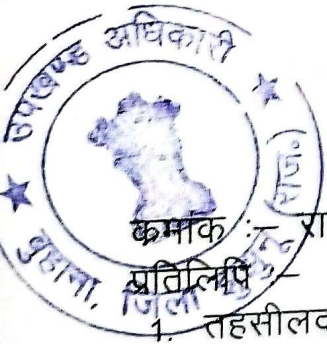 उपखण्ड अधिकारी
बुहाना, जिला झुन्झुनू (राज.)
क्रमांक :– रा
प्रतिलिपि :–
1. तहसीलद